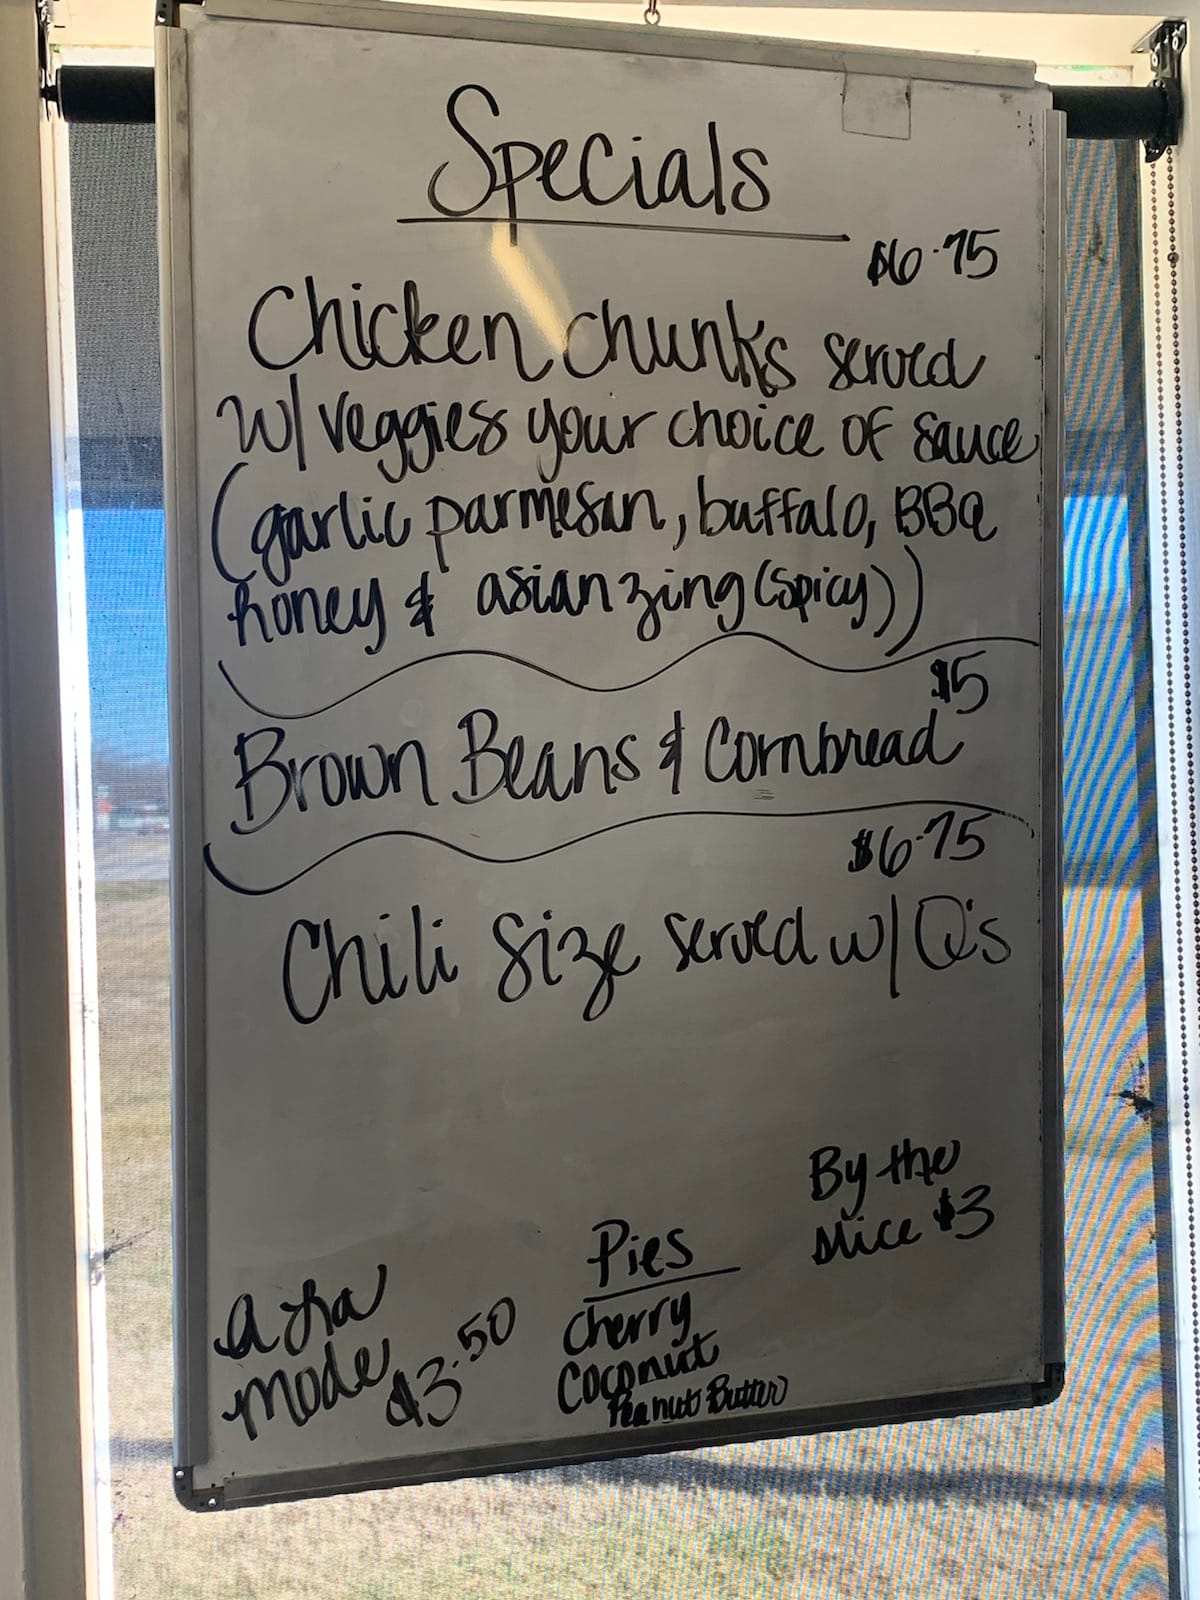 Specials
$6.75
Chicken chunks served
w/ veggies your choice of sauce
(garlic parmesan, buffalo, BBQ
honey & asian zing (spicy))
$5
Brown Beans & Cornbread
$6.75
Chili Size served w/ Q's
By the
slice $3
Pies
Cherry
Coconut
Peanut Butter
A la
mode $3.50